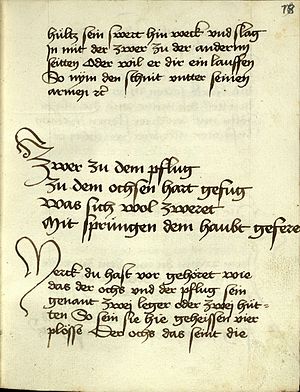 78
hültz sein swert hin weck vnd slag
In mit der zwer zu der andernn
seitten Oder wil er dir ein lauffen
So nÿm den schnit vntter seinen
armen ꝛc
Zwer zu dem pflug
Zu dem ochsen hart gefug
was sich wol zweret
Mit sprüngen dem haubt gefere
Merck du hast vor gehöret wie
das der ochs vnd der pflug sein
genant zweÿ leger oder zweÿ hüt-
ten So sein sie hie geheissen vier
plösse Der ochs das seint die